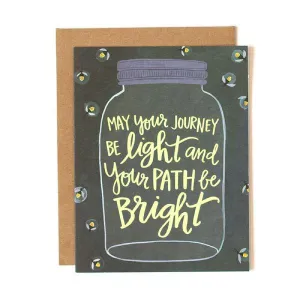 MAY your JOURNEY
BE light and
your PATH be
BRIGHT